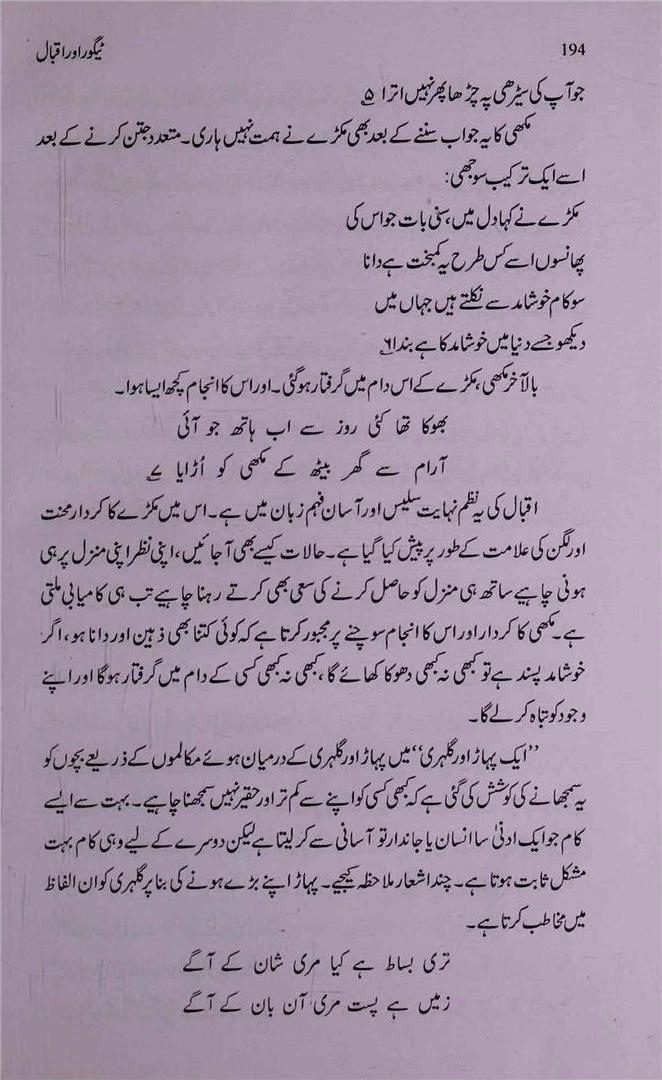 194
ٹیگور اور اقبال
جو آپ کی سیڑھی پہ چڑھا پھر نہیں اترا ۵
مکھی کا یہ جواب سننے کے بعد بھی مکڑے نے ہمت نہیں ہاری۔ متعدد جتن کرنے کے بعد
اسے ایک ترکیب سوجھی:
مکڑے نے کہا دل میں، سنی بات جو اس کی
پھانسوں اسے کس طرح یہ کمبخت ہے دانا
سو کام خوشامد سے نکلتے ہیں جہاں میں
دیکھو جسے دنیا میں خوشامد کا ہے بندا ۶
بالآخر مکھی، مکڑے کے اس دام میں گرفتار ہو گئی۔ اور اس کا انجام کچھ ایسا ہوا۔
بھوکا تھا کئی روز سے اب ہاتھ جو آئی
آرام سے گھر بیٹھ کے مکھی کو اُڑایا ۷
اقبال کی یہ نظم نہایت سلیس اور آسان فہم زبان میں ہے۔ اس میں مکڑے کا کردار محنت
اور لگن کی علامت کے طور پر پیش کیا گیا ہے۔ حالات کیسے بھی آ جائیں، اپنی نظر اپنی منزل پر ہی
ہونی چاہیے ساتھ ہی منزل کو حاصل کرنے کی سعی بھی کرتے رہنا چاہیے تب ہی کامیابی ملتی
ہے۔ مکھی کا کردار اور اس کا انجام سوچنے پر مجبور کرتا ہے کہ کوئی کتنا بھی ذہین اور دانا ہو، اگر
خوشامد پسند ہے تو کبھی نہ کبھی دھوکا کھائے گا، کبھی نہ کبھی کسی کے دام میں گرفتار ہوگا اور اپنے
وجود کو تباہ کر لے گا۔
’’ایک پہاڑ اور گلہری‘‘ میں پہاڑ اور گلہری کے درمیان ہوئے مکالموں کے ذریعے بچوں کو
یہ سمجھانے کی کوشش کی گئی ہے کہ کبھی کسی کو اپنے سے کم تر اور حقیر نہیں سمجھنا چاہیے۔ بہت سے ایسے
کام جو ایک ادنیٰ سا انسان یا جاندار تو آسانی سے کر لیتا ہے لیکن دوسرے کے لیے وہی کام بہت
مشکل ثابت ہوتا ہے۔ چند اشعار ملاحظہ کیجیے۔ پہاڑ اپنے بڑے ہونے کی بنا پر گلہری کو ان الفاظ
میں مخاطب کرتا ہے۔
تری بساط ہے کیا مری شان کے آگے
زمیں ہے پست مری آن بان کے آگے